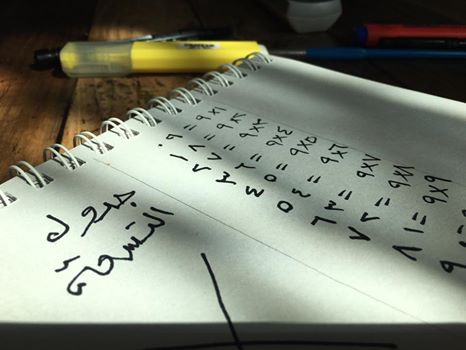 جدول
التسعة
٩×١ = ٠٩
٩×٢ = ١٨
٩×٣ = ٢٧
٩×٤ = ٣٦
٩×٥ = ٤٥
٩×٦ = ٥٤
٩×٧ = ٦٣
٩×٨ = ٧٢
٩×٩ = ٨١
= ٩٠